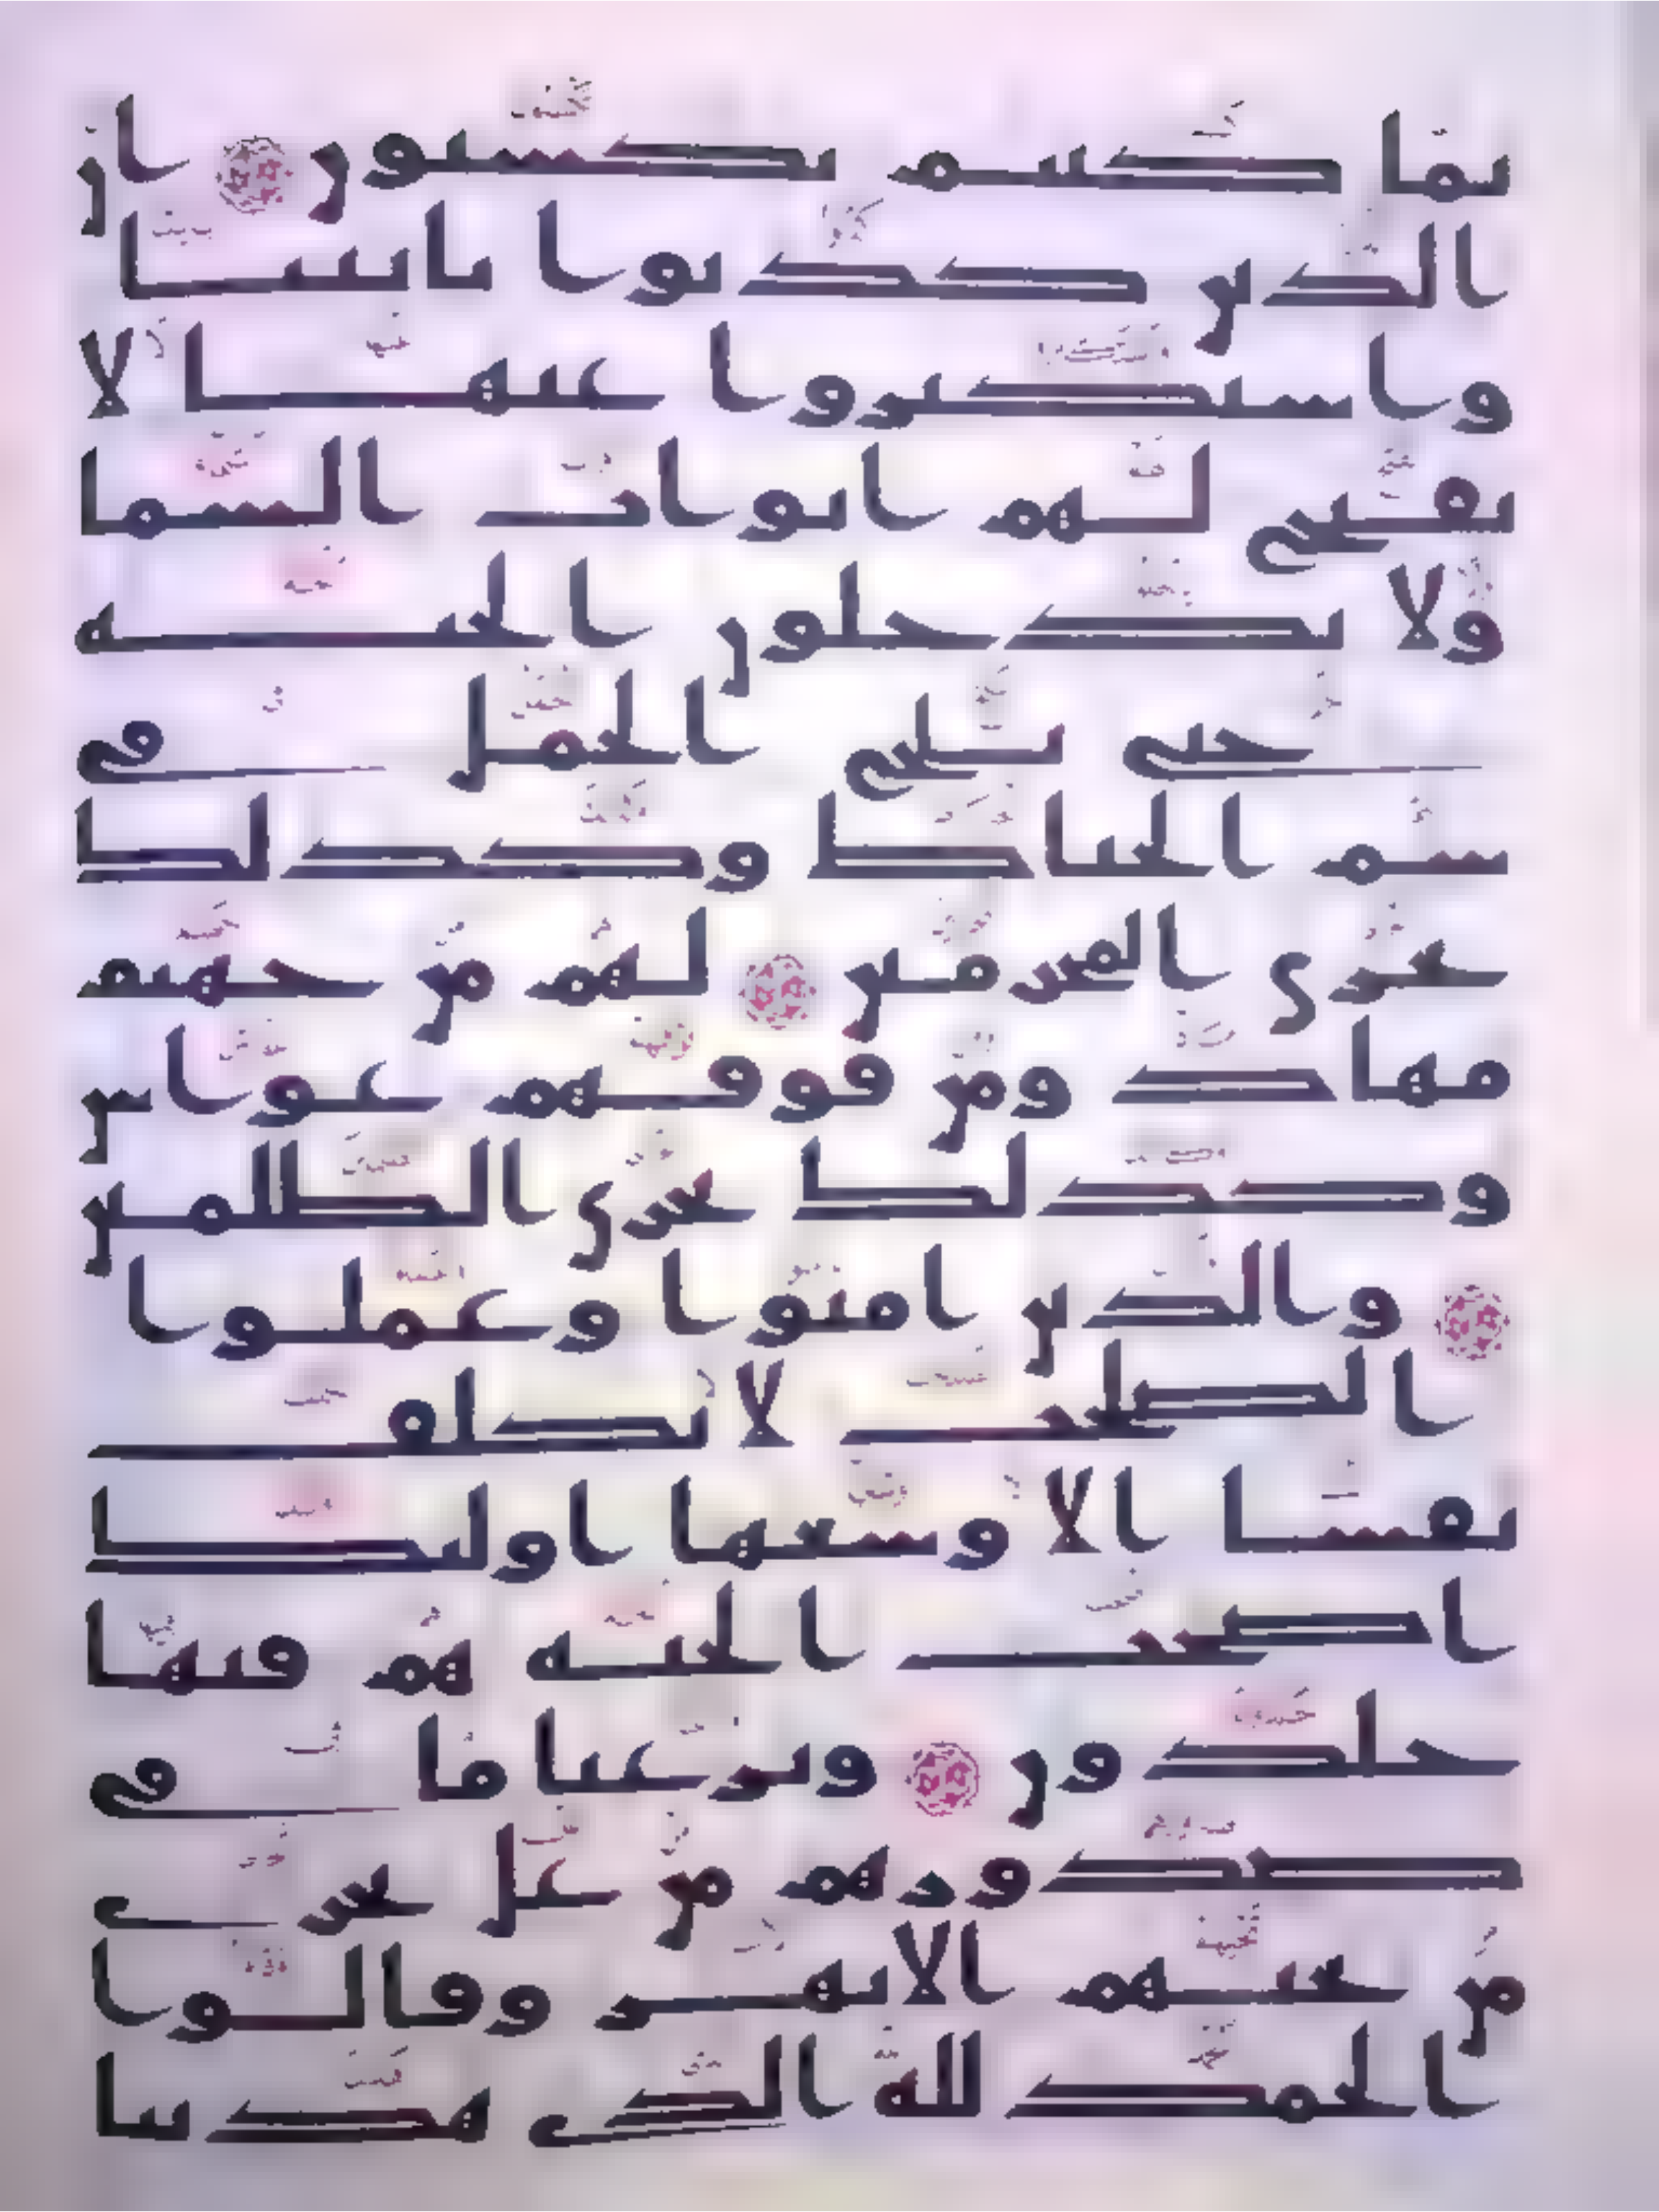 بما كنتم تكسبون ان
الذين كذبوا بايتنا
واستكبروا عنها لا
تفتح لهم ابواب السما
ولا يدخلون الجنة
حتى يلج الجمل في
سم الخياط وكذلك
نجزي المجرمين لهم من جهنم
مهاد ومن فوقهم غواش
وكذلك نجزي الظلمين
والذين امنوا وعملوا
الصلحت لا نكلف
نفسا الا وسعها اولئك
اصحب الجنة هم فيها
خلدون ونزعنا ما في
صدورهم من غل تجري
من تحتهم الانهر وقالوا
الحمد لله الذي هدينا